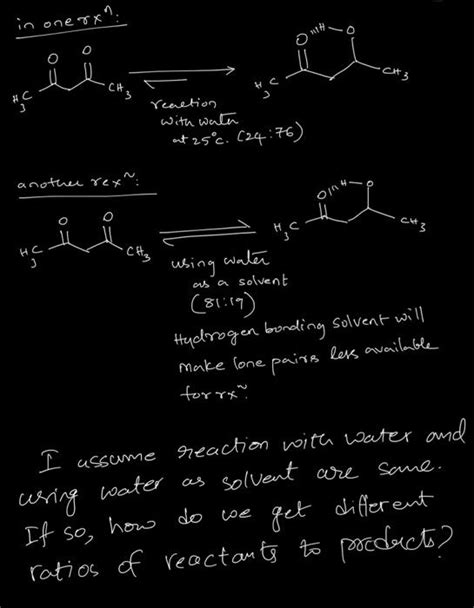 in one rxⁿ:
O O
H₃C CH₃
O H O
H₃C CH₃
reaction
with water
at 25°c. (24:76)
another rex~:
O O
H₃C CH₃
O H O
H₃C CH₃
using water
as a solvent
(81:19)
Hydrogen bonding solvent will
make lone pairs less available
for rx~
I assume reaction with water and
using water as solvent are same.
If so, how do we get different
ratios of reactants to products?